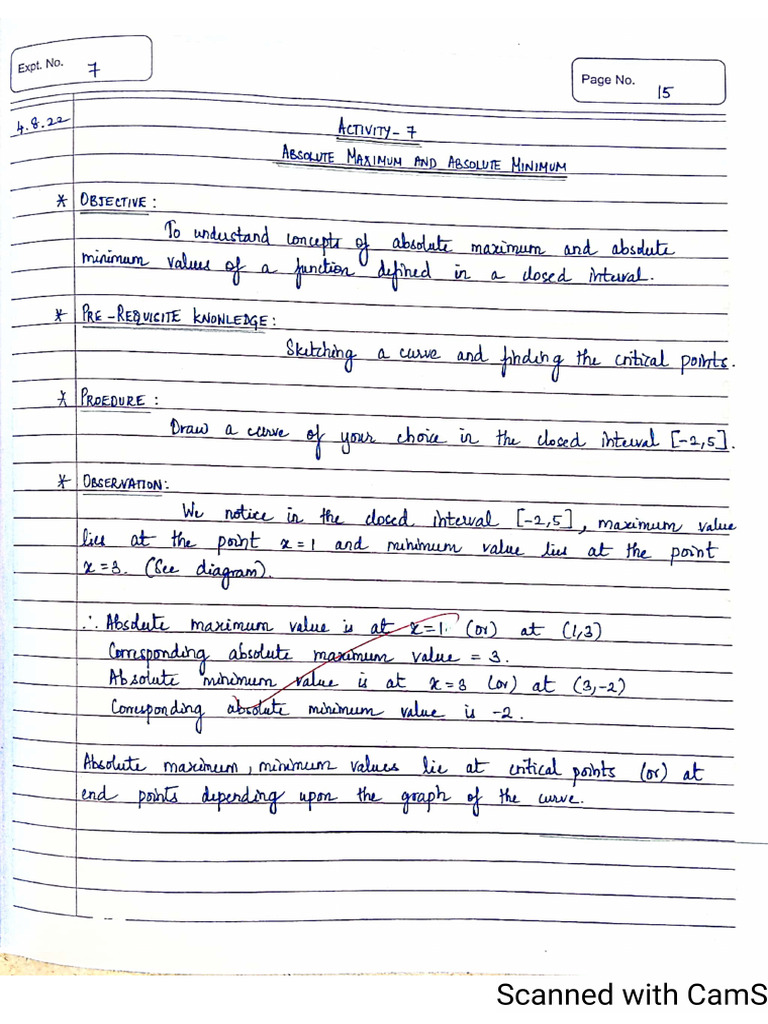 Expt. No. 7
Page No. 15
4.8.22
ACTIVITY - 7
ABSOLUTE MAXIMUM AND ABSOLUTE MINIMUM
* OBJECTIVE :
To understand concepts of absolute maximum and absolute
minimum values of a function defined in a closed interval.
* PRE-REQUICITE KNOWLEDGE :
Sketching a curve and finding the critical points.
* PROEDURE :
Draw a curve of your choice in the closed interval [-2,5].
* OBSERVATION:
We notice in the closed interval [-2,5], maximum value
lies at the point x=1 and minimum value lies at the point
x=3. (See diagram).
∴ Absolute maximum value is at x=1. (or) at (1,3)
Corresponding absolute maximum value = 3.
Absolute minimum value is at x=3 (or) at (3,-2)
Corresponding absolute minimum value is -2.
Absolute maximum, minimum values lie at critical points (or) at
end points depending upon the graph of the curve.
Scanned with CamS